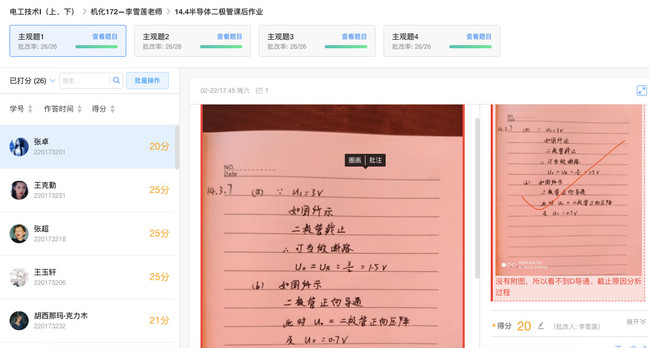 电工技术I（上、下） > 机化172—李雪莲老师 > 14.4半导体二极管课后作业
主观题1 查看题目
批改率: 26/26
主观题2 查看题目
批改率: 26/26
主观题3 查看题目
批改率: 26/26
主观题4 查看题目
批改率: 26/26
已打分 (26)
搜索...
批量操作
学号 作答时间 得分
张卓
220173201
20分
王克勤
220173231
25分
张超
220173218
25分
王玉轩
220173206
25分
胡西那玛·克力木
220173232
21分
02-22/17:45 周六 1
圈画 批注
NO.
Date
14.3.7 (a) ∵ U₁=3V
如图所示
二极管截止
∴可当做断路
U₀=UR=3/2=1.5V
(b) 如图所示
二极管正向导通
此时 U₀=二极管正向压降
及 U₀=0.7V
14.3.7 (a) ∵ U₁=3V
如图所示
二极管截止
∴可当做断路
U₀=UR=3/2=1.5V
(b) 如图所示
二极管正向导通
此时 U₀=二极管正向压降
及 U₀=0.7V
没有附图，所以看不到D导通、截止原因分析
过程
得分 20 (批改人: 李雪莲) 展开